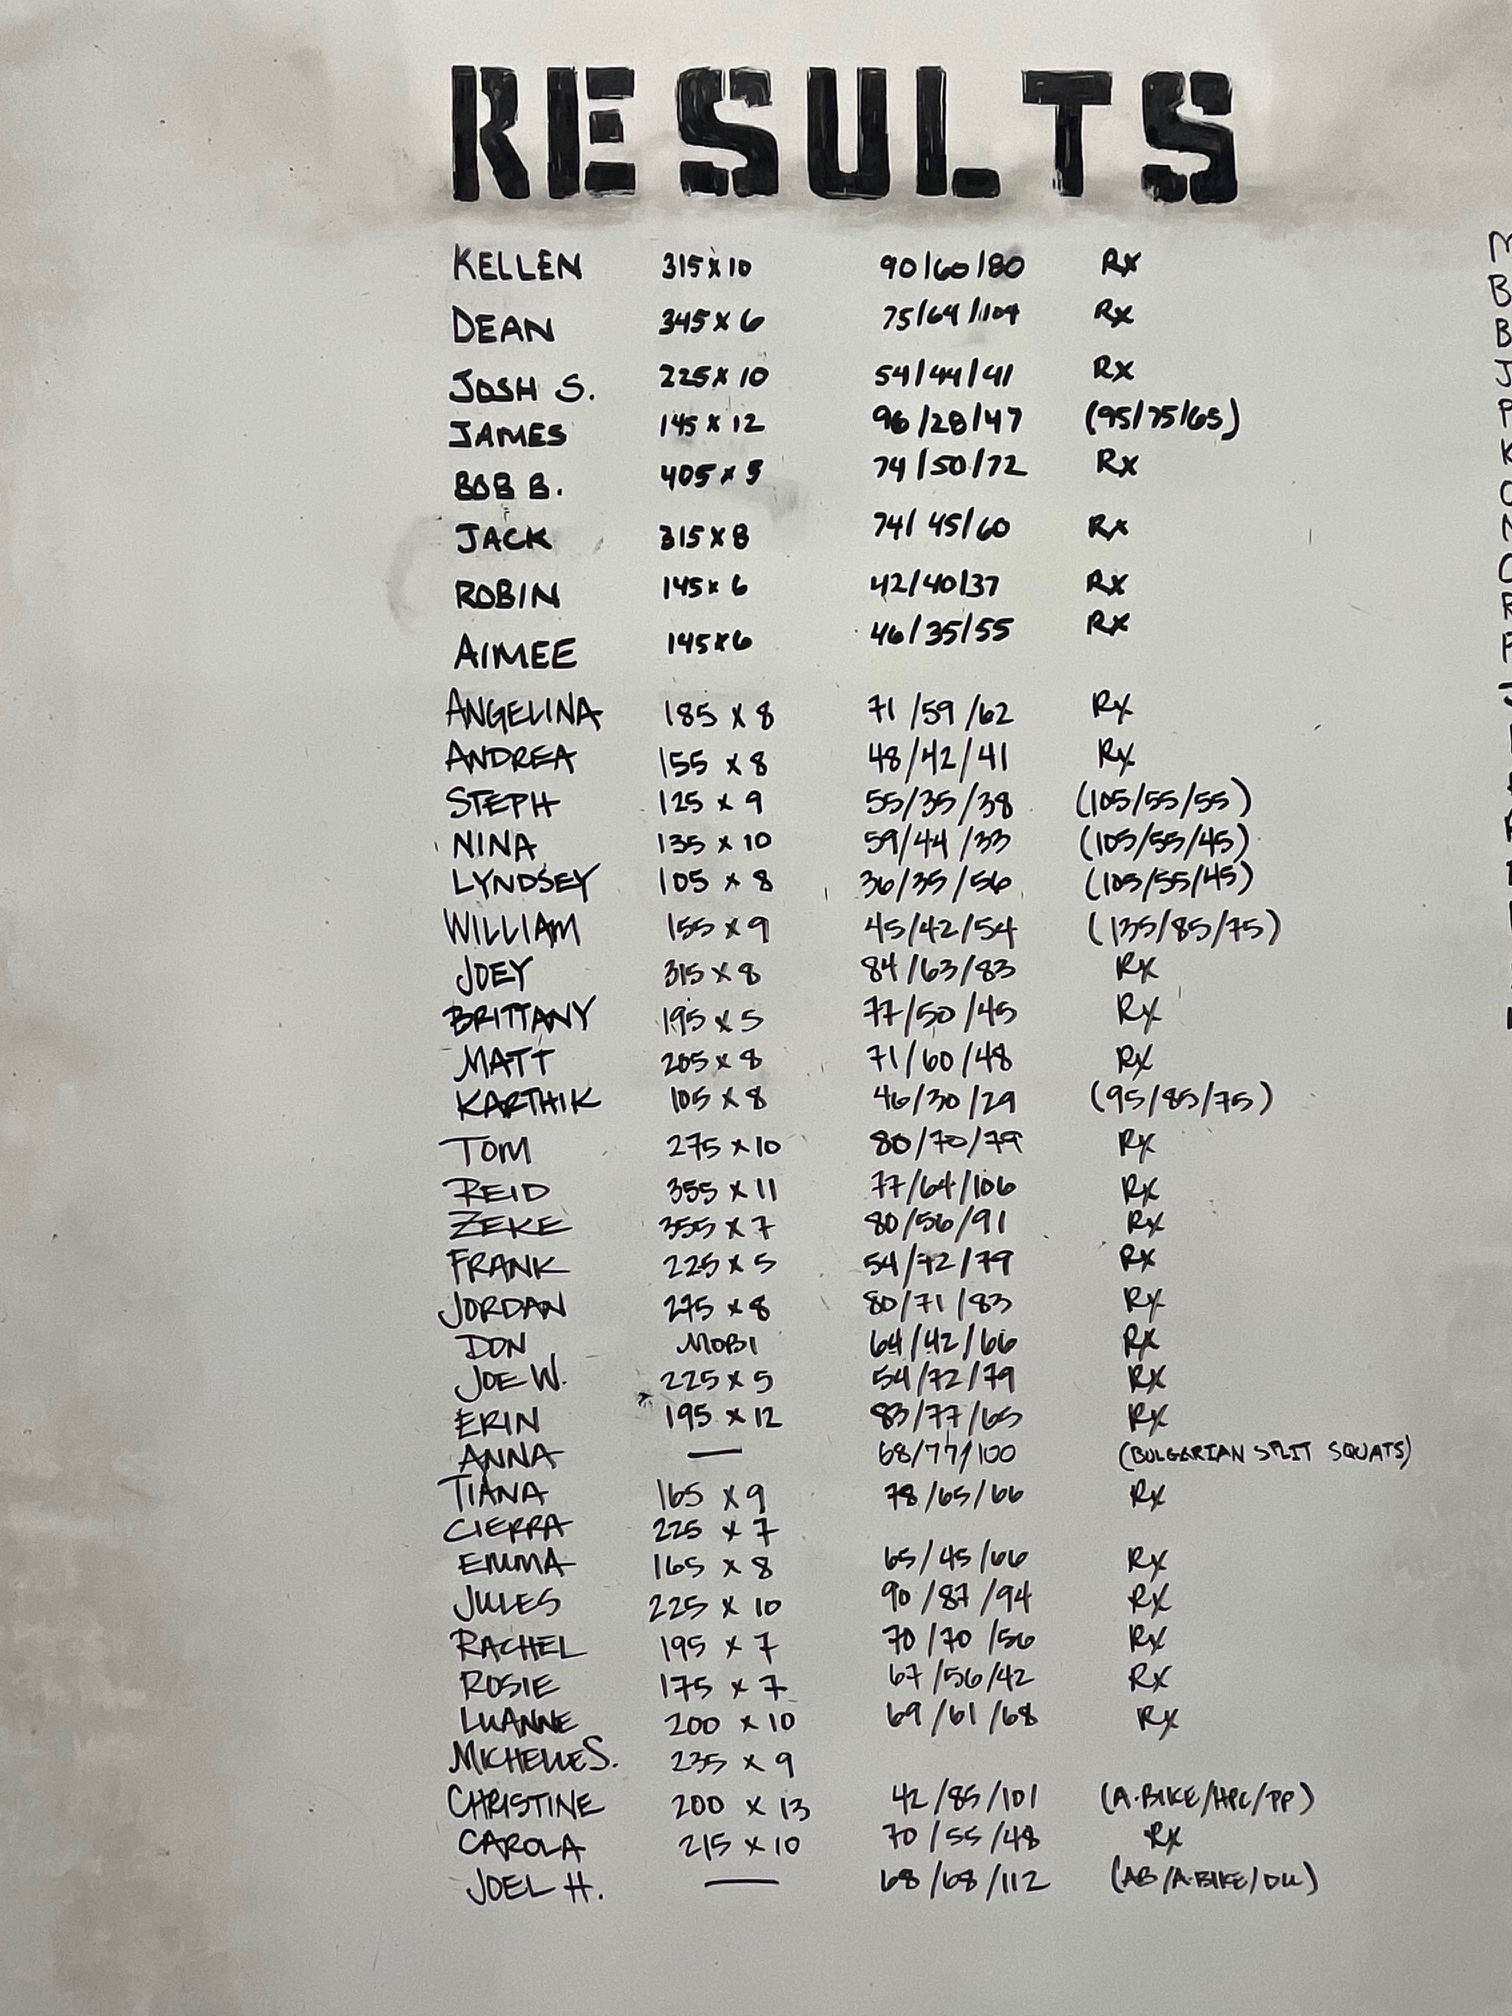 RESULTS
KELLEN 315 x 10 90/60/80 Rx
DEAN 345 x 6 75/64/104 Rx
JOSH S. 225 x 10 54/44/41 Rx
JAMES 145 x 12 96/28/47 (95/75/65)
BOB B. 405 x 5 74/50/72 Rx
JACK 315 x 8 74/45/60 Rx
ROBIN 145 x 6 42/40/37 Rx
AIMEE 145 x 6 46/35/55 Rx
ANGELINA 185 x 8 71/59/62 Rx
ANDREA 155 x 8 48/42/41 Rx
STEPH 125 x 9 55/35/38 (105/55/55)
NINA 135 x 10 59/44/33 (105/55/45)
LYNDSEY 105 x 8 36/35/56 (105/55/45)
WILLIAM 155 x 9 45/42/54 (135/85/75)
JOEY 315 x 8 84/63/83 Rx
BRITTANY 195 x 5 77/50/45 Rx
MATT 205 x 8 71/60/48 Rx
KARTHIK 105 x 8 46/30/29 (95/85/75)
TOM 275 x 10 80/70/79 Rx
REID 355 x 11 77/64/106 Rx
ZEKE 355 x 7 80/56/91 Rx
FRANK 225 x 5 54/72/79 Rx
JORDAN 275 x 8 80/71/83 Rx
DON MOBI 64/42/66 Rx
JOE W. 225 x 5 54/72/79 Rx
ERIN 195 x 12 83/77/65 Rx
ANNA — 68/77/100 (BULGARIAN SPLIT SQUATS)
TIANA 165 x 9 78/65/66 Rx
CIERRA 225 x 7
EMMA 165 x 8 65/45/66 Rx
JULES 225 x 10 90/87/94 Rx
RACHEL 195 x 7 70/70/56 Rx
ROSIE 175 x 7 67/56/42 Rx
LUANNE 200 x 10 69/61/68 Rx
MICHELLE S. 235 x 9
CHRISTINE 200 x 13 42/85/101 (A.BIKE/HPC/PP)
CAROLA 215 x 10 70/55/48 Rx
JOEL H. — 68/68/112 (AB/A.BIKE/DU)